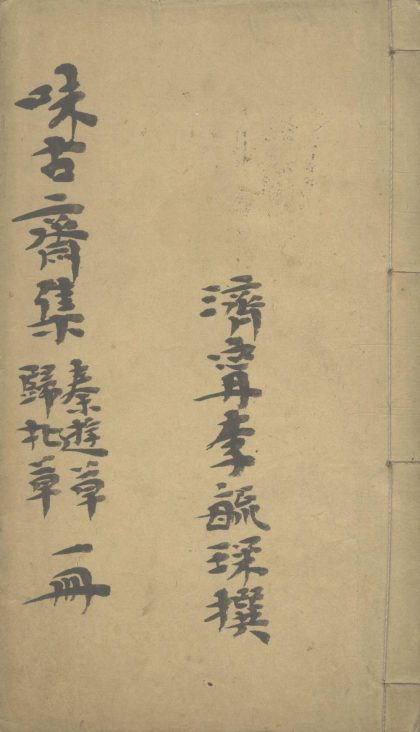 濟甯李毓琛撰
味古齋集 秦遊草 歸北草 一冊